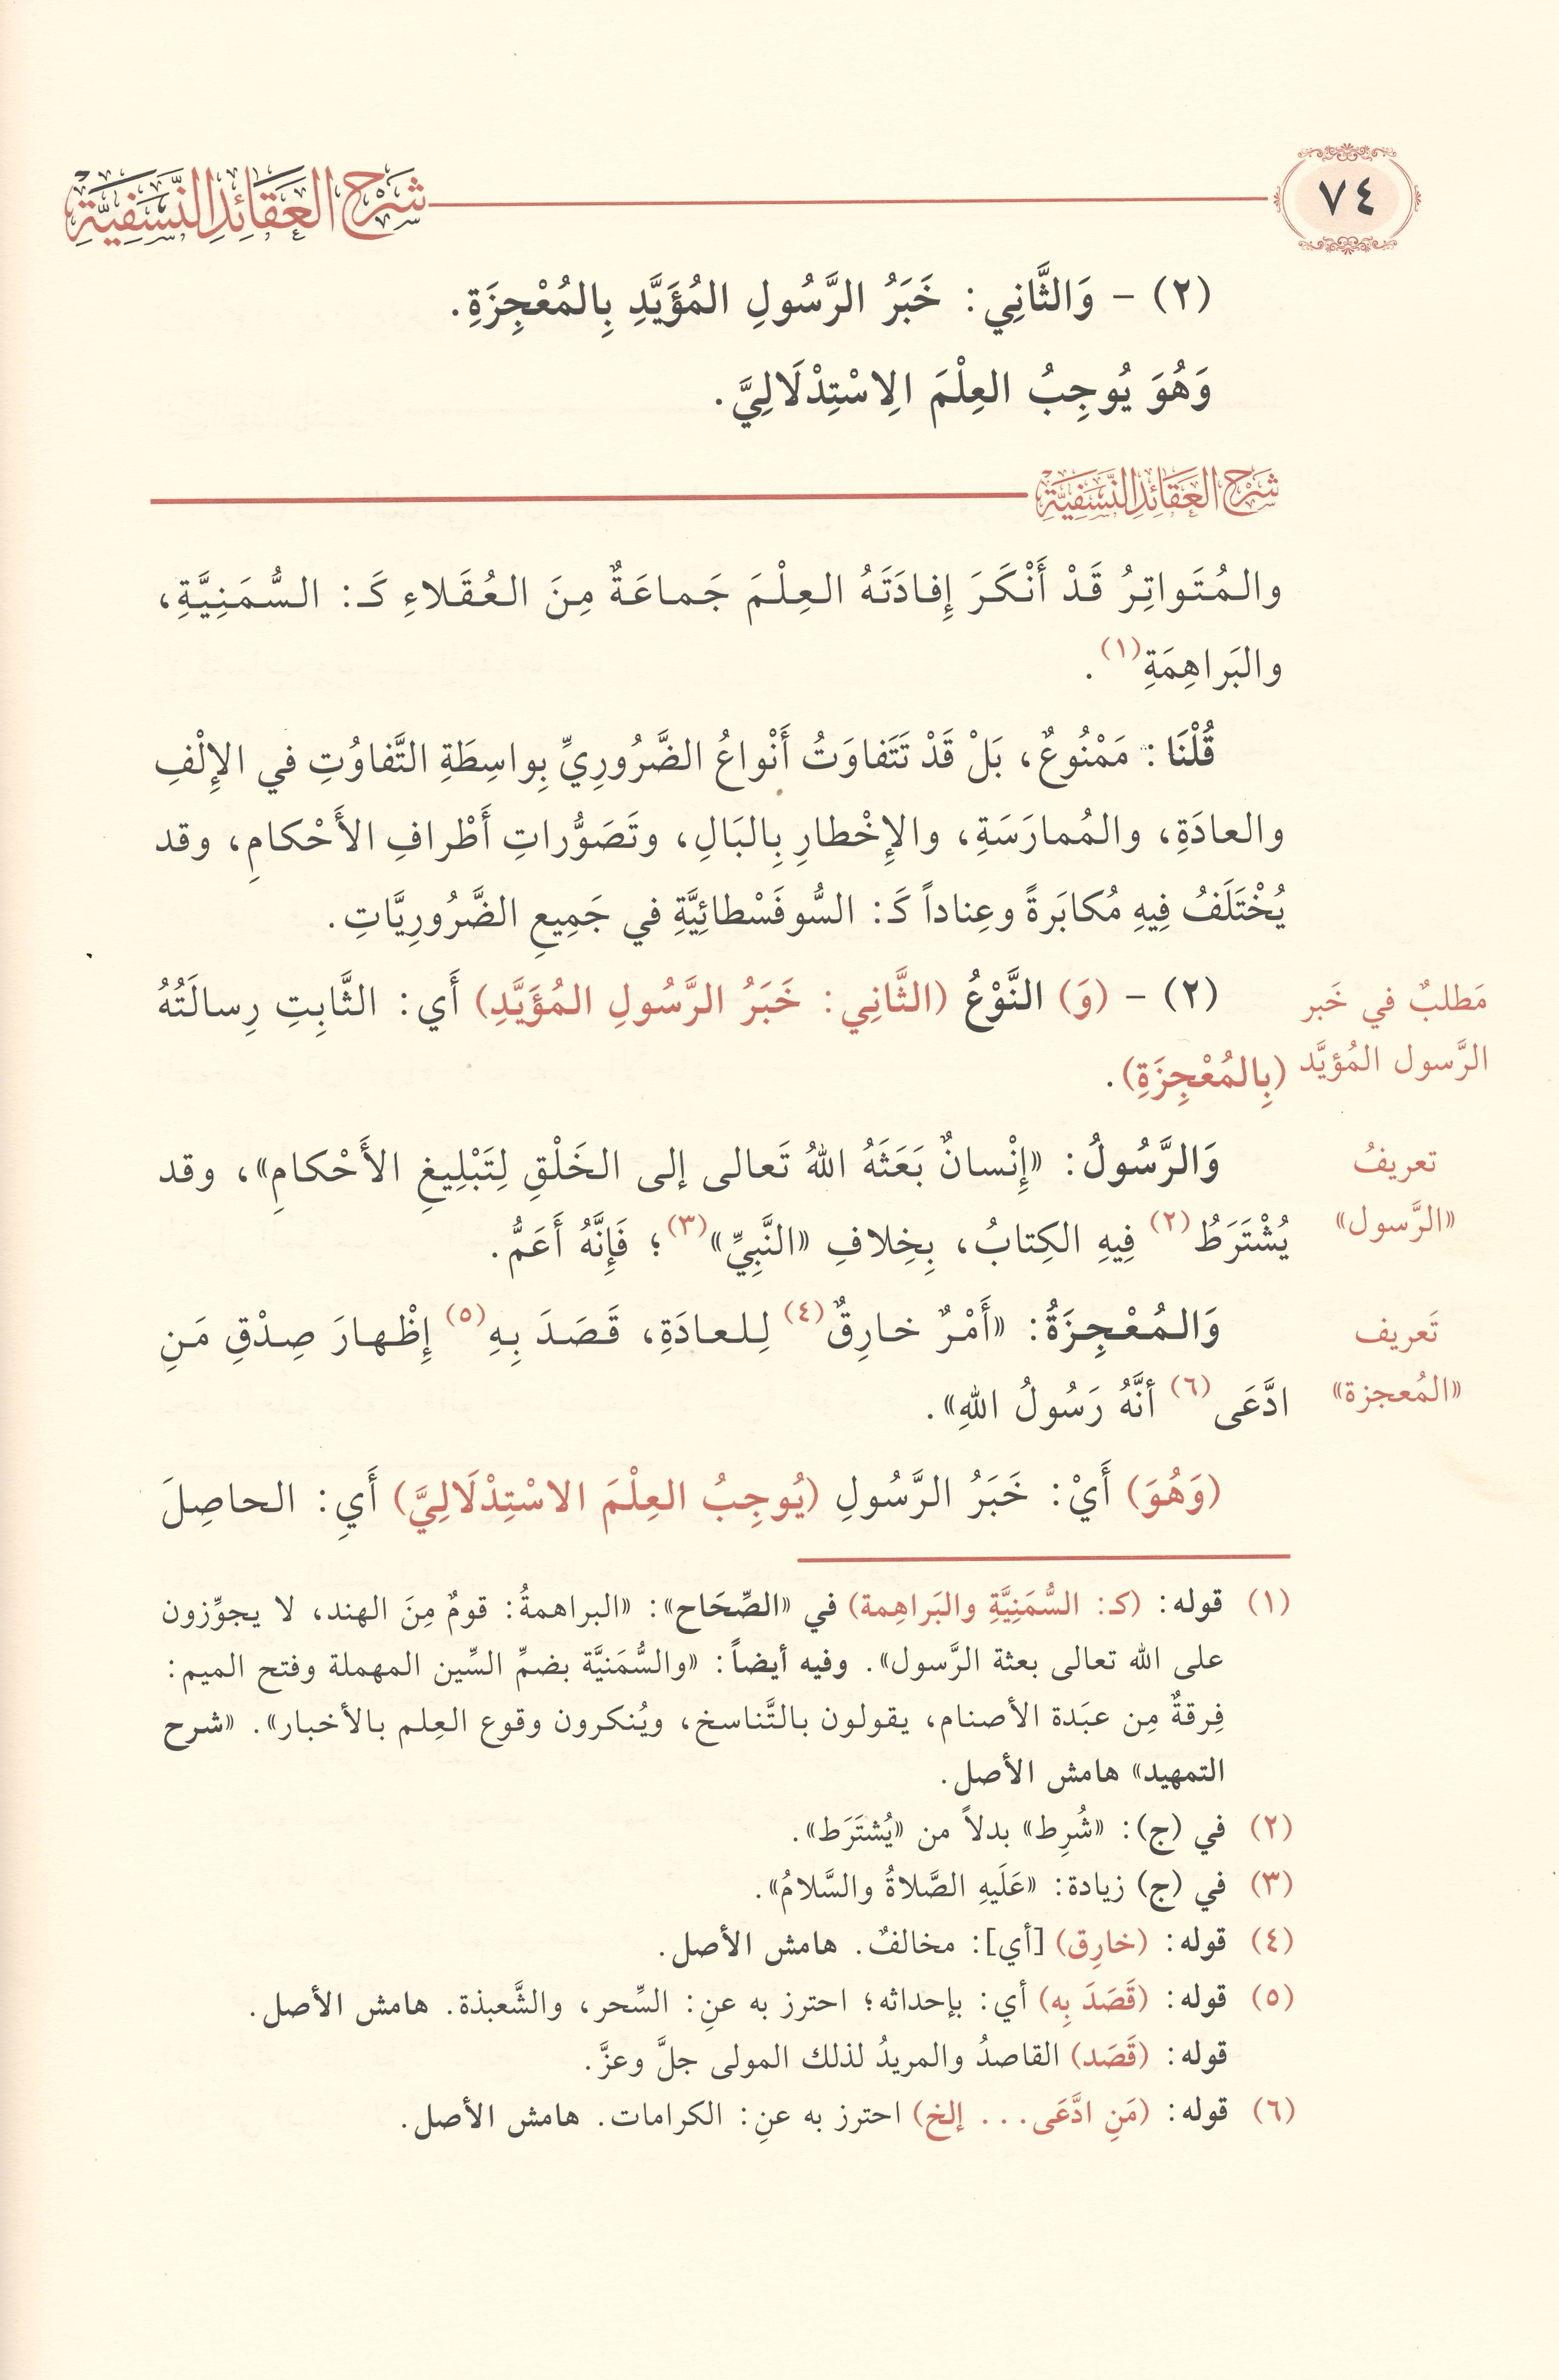 ٧٤
شَرْحُ العَقَائِدِ النَّسَفِيَّةِ
(٢) - وَالثَّانِي: خَبَرُ الرَّسُولِ المُؤَيَّدِ بِالمُعْجِزَةِ.
وَهُوَ يُوجِبُ العِلْمَ الِاسْتِدْلَالِيَّ.
شَرْحُ العَقَائِدِ النَّسَفِيَّةِ
والمُتَواتِرُ قَدْ أَنْكَرَ إِفادَتَهُ العِلْمَ جَماعَةٌ مِنَ العُقَلاءِ كَـ: السُّمَنِيَّةِ،
والبَراهِمَةِ(١).
قُلْنَا: مَمْنُوعٌ، بَلْ قَدْ تَتَفاوَتُ أَنْواعُ الضَّرُورِيِّ بِواسِطَةِ التَّفاوُتِ في الإِلْفِ
والعادَةِ، والمُمارَسَةِ، والإِخْطارِ بِالبَالِ، وتَصَوُّراتِ أَطْرافِ الأَحْكامِ، وقد
يُخْتَلَفُ فِيهِ مُكابَرةً وعِناداً كَـ: السُّوفَسْطائِيَّةِ في جَمِيعِ الضَّرُورِيَّاتِ.
مَطلبٌ في خَبر
الرَّسول المُؤيَّد
(٢) - (وَ) النَّوْعُ (الثَّانِي: خَبَرُ الرَّسُولِ المُؤَيَّدِ) أَي: الثَّابِتِ رِسالَتُهُ
(بِالمُعْجِزَةِ).
تعريفُ
«الرَّسول»
وَالرَّسُولُ: «إِنْسانٌ بَعَثَهُ اللهُ تَعالى إلى الخَلْقِ لِتَبْلِيغِ الأَحْكامِ»، وقد
يُشْتَرَطُ(٢) فِيهِ الكِتابُ، بِخِلافِ «النَّبِيِّ»(٣)؛ فَإِنَّهُ أَعَمُّ.
تَعريف
«المُعجزة»
وَالمُعْجِزَةُ: «أَمْرٌ خارِقٌ(٤) لِلعادَةِ، قَصَدَ بِهِ(٥) إِظْهارَ صِدْقِ مَنِ
ادَّعَى(٦) أنَّهُ رَسُولُ اللهِ».
(وَهُوَ) أَيْ: خَبَرُ الرَّسُولِ (يُوجِبُ العِلْمَ الاسْتِدْلَالِيَّ) أَيِ: الحاصِلَ
(١) قوله: (كـ: السُّمَنِيَّةِ والبَراهِمة) في «الصِّحَاح»: «البراهمةُ: قومٌ مِنَ الهند، لا يجوِّزون
على الله تعالى بعثة الرَّسول». وفيه أيضاً: «والسُّمَنيَّة بضمِّ السِّين المهملة وفتح الميم:
فِرقةٌ مِن عبَدة الأصنام، يقولون بالتَّناسخ، ويُنكرون وقوع العِلم بالأخبار». «شرح
التمهيد» هامش الأصل.
(٢) في (ج): «شُرِط» بدلاً من «يُشتَرَط».
(٣) في (ج) زيادة: «عَلَيهِ الصَّلاةُ والسَّلامُ».
(٤) قوله: (خارِق) [أي]: مخالفٌ. هامش الأصل.
(٥) قوله: (قَصَدَ بِه) أي: بإحداثه؛ احترز به عنِ: السِّحر، والشَّعبذة. هامش الأصل.
قوله: (قَصَد) القاصدُ والمريدُ لذلك المولى جلَّ وعزَّ.
(٦) قوله: (مَنِ ادَّعَى... إلخ) احترز به عنِ: الكرامات. هامش الأصل.